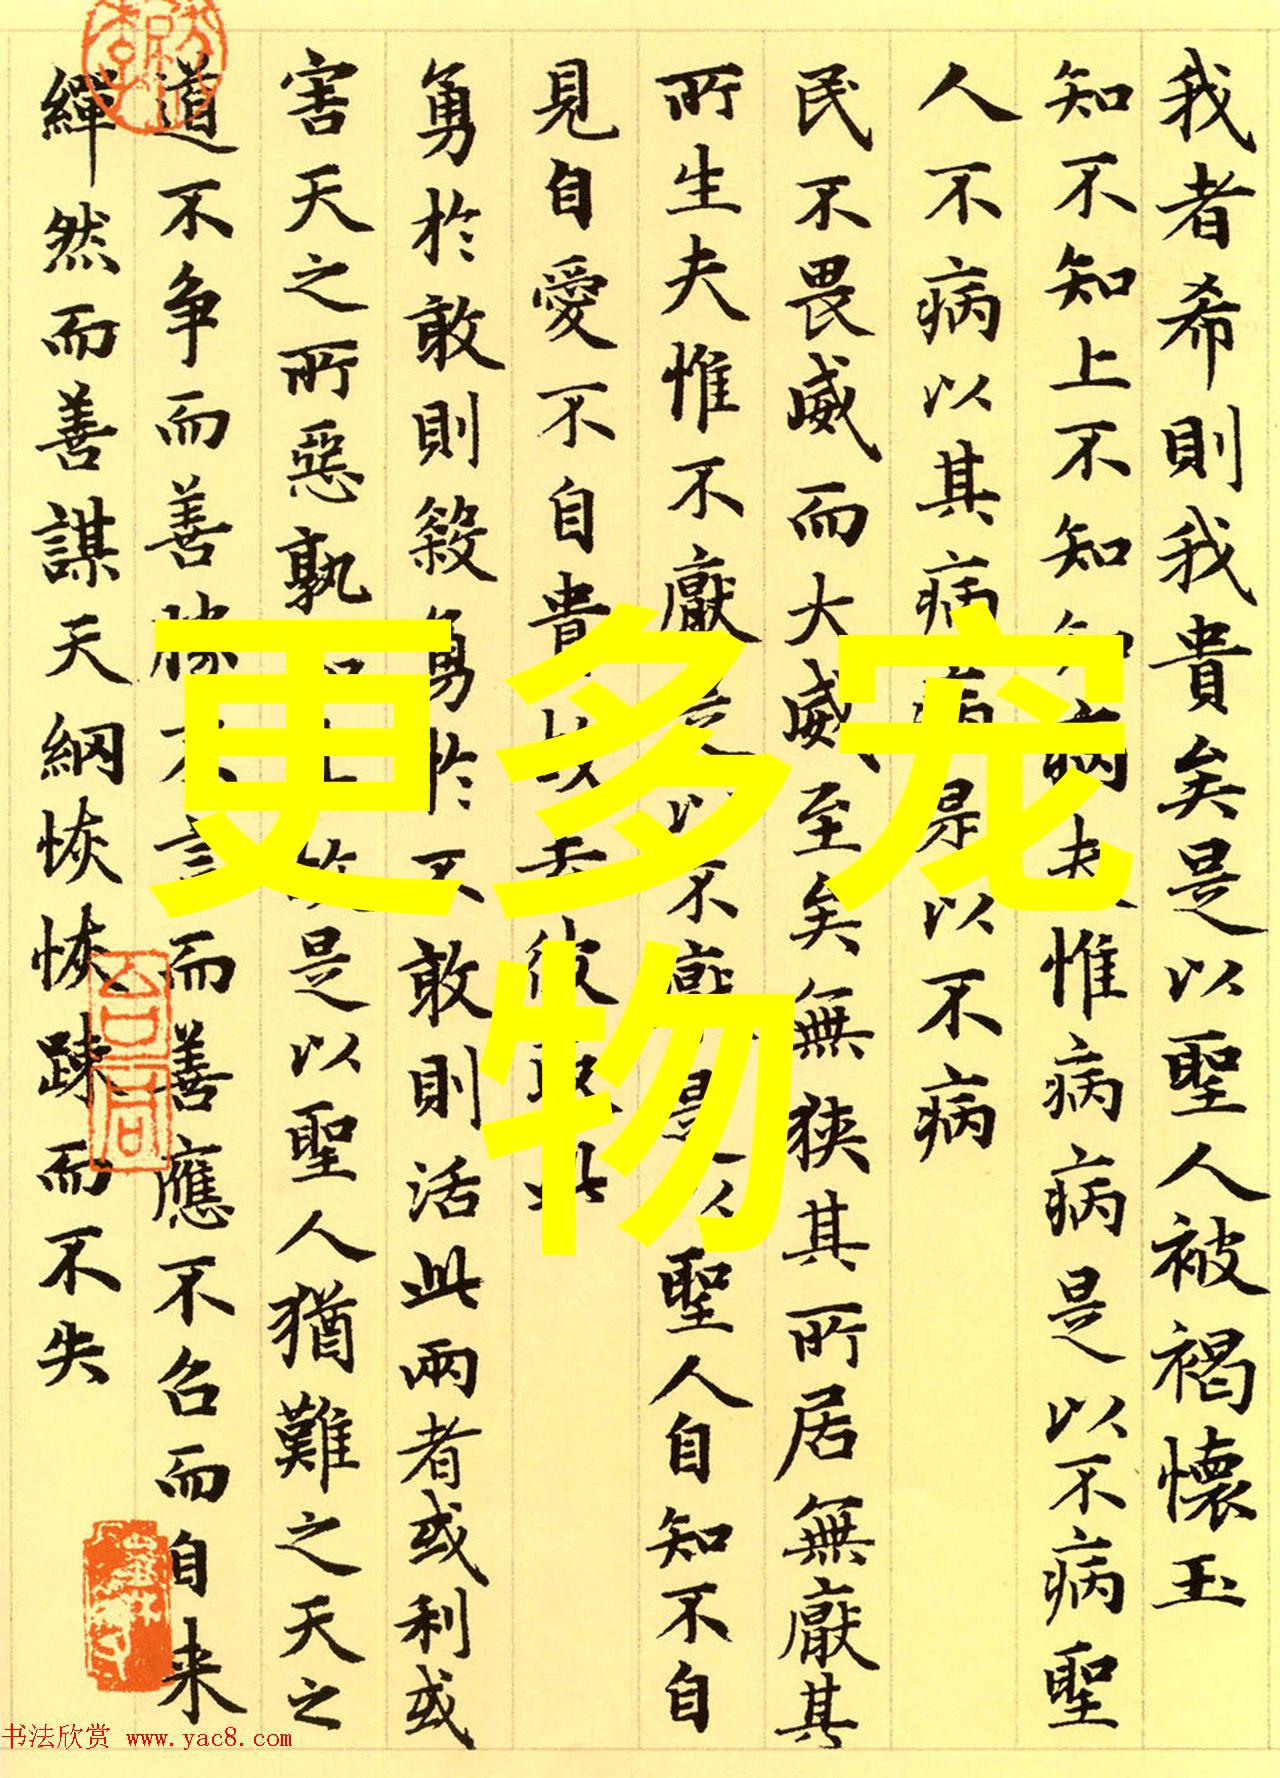 我者希則我貴矣是以聖人被褐懷玉
知不知上不知知病夫惟病病是以不病聖
人不病以其病病是以不病
民不畏威而大威至矣無狹其所居無厭其
所生夫惟不厭是以不厭是以聖人自知不自
見自愛不自貴故去彼取此
勇於敢則殺勇於不敢則活此兩者或利或
害天之所惡孰知其故是以聖人猶難之天之
道不争而善勝不言而善應不召而自来
繟然而善謀天綱恢恢踈而不失
更多宠
物
书法欣赏 www.yac8.com